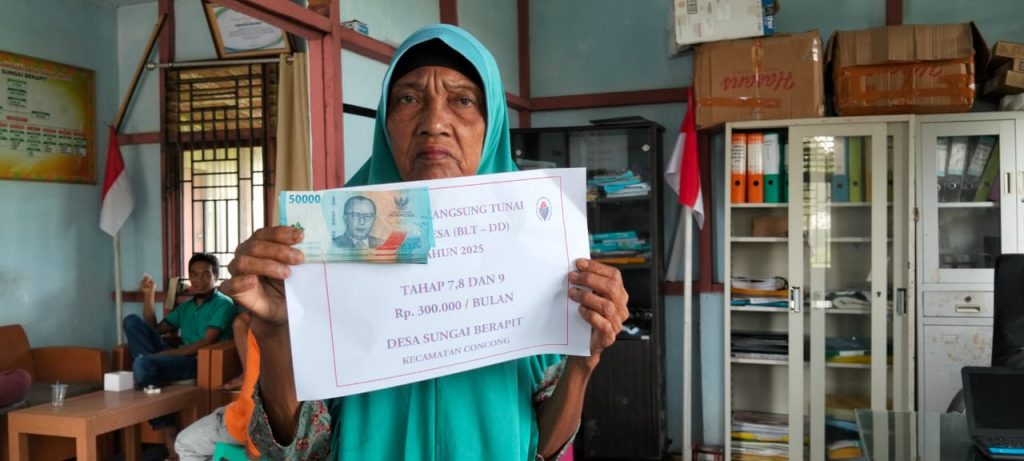 SUNGAI BERAPIT
50000
ANGSUNG TUNAI
ESA (BLT – DD)
AHUN 2025
TAHAP 7,8 DAN 9
Rp. 300.000 / BULAN
DESA SUNGAI BERAPIT
KECAMATAN CONCONG